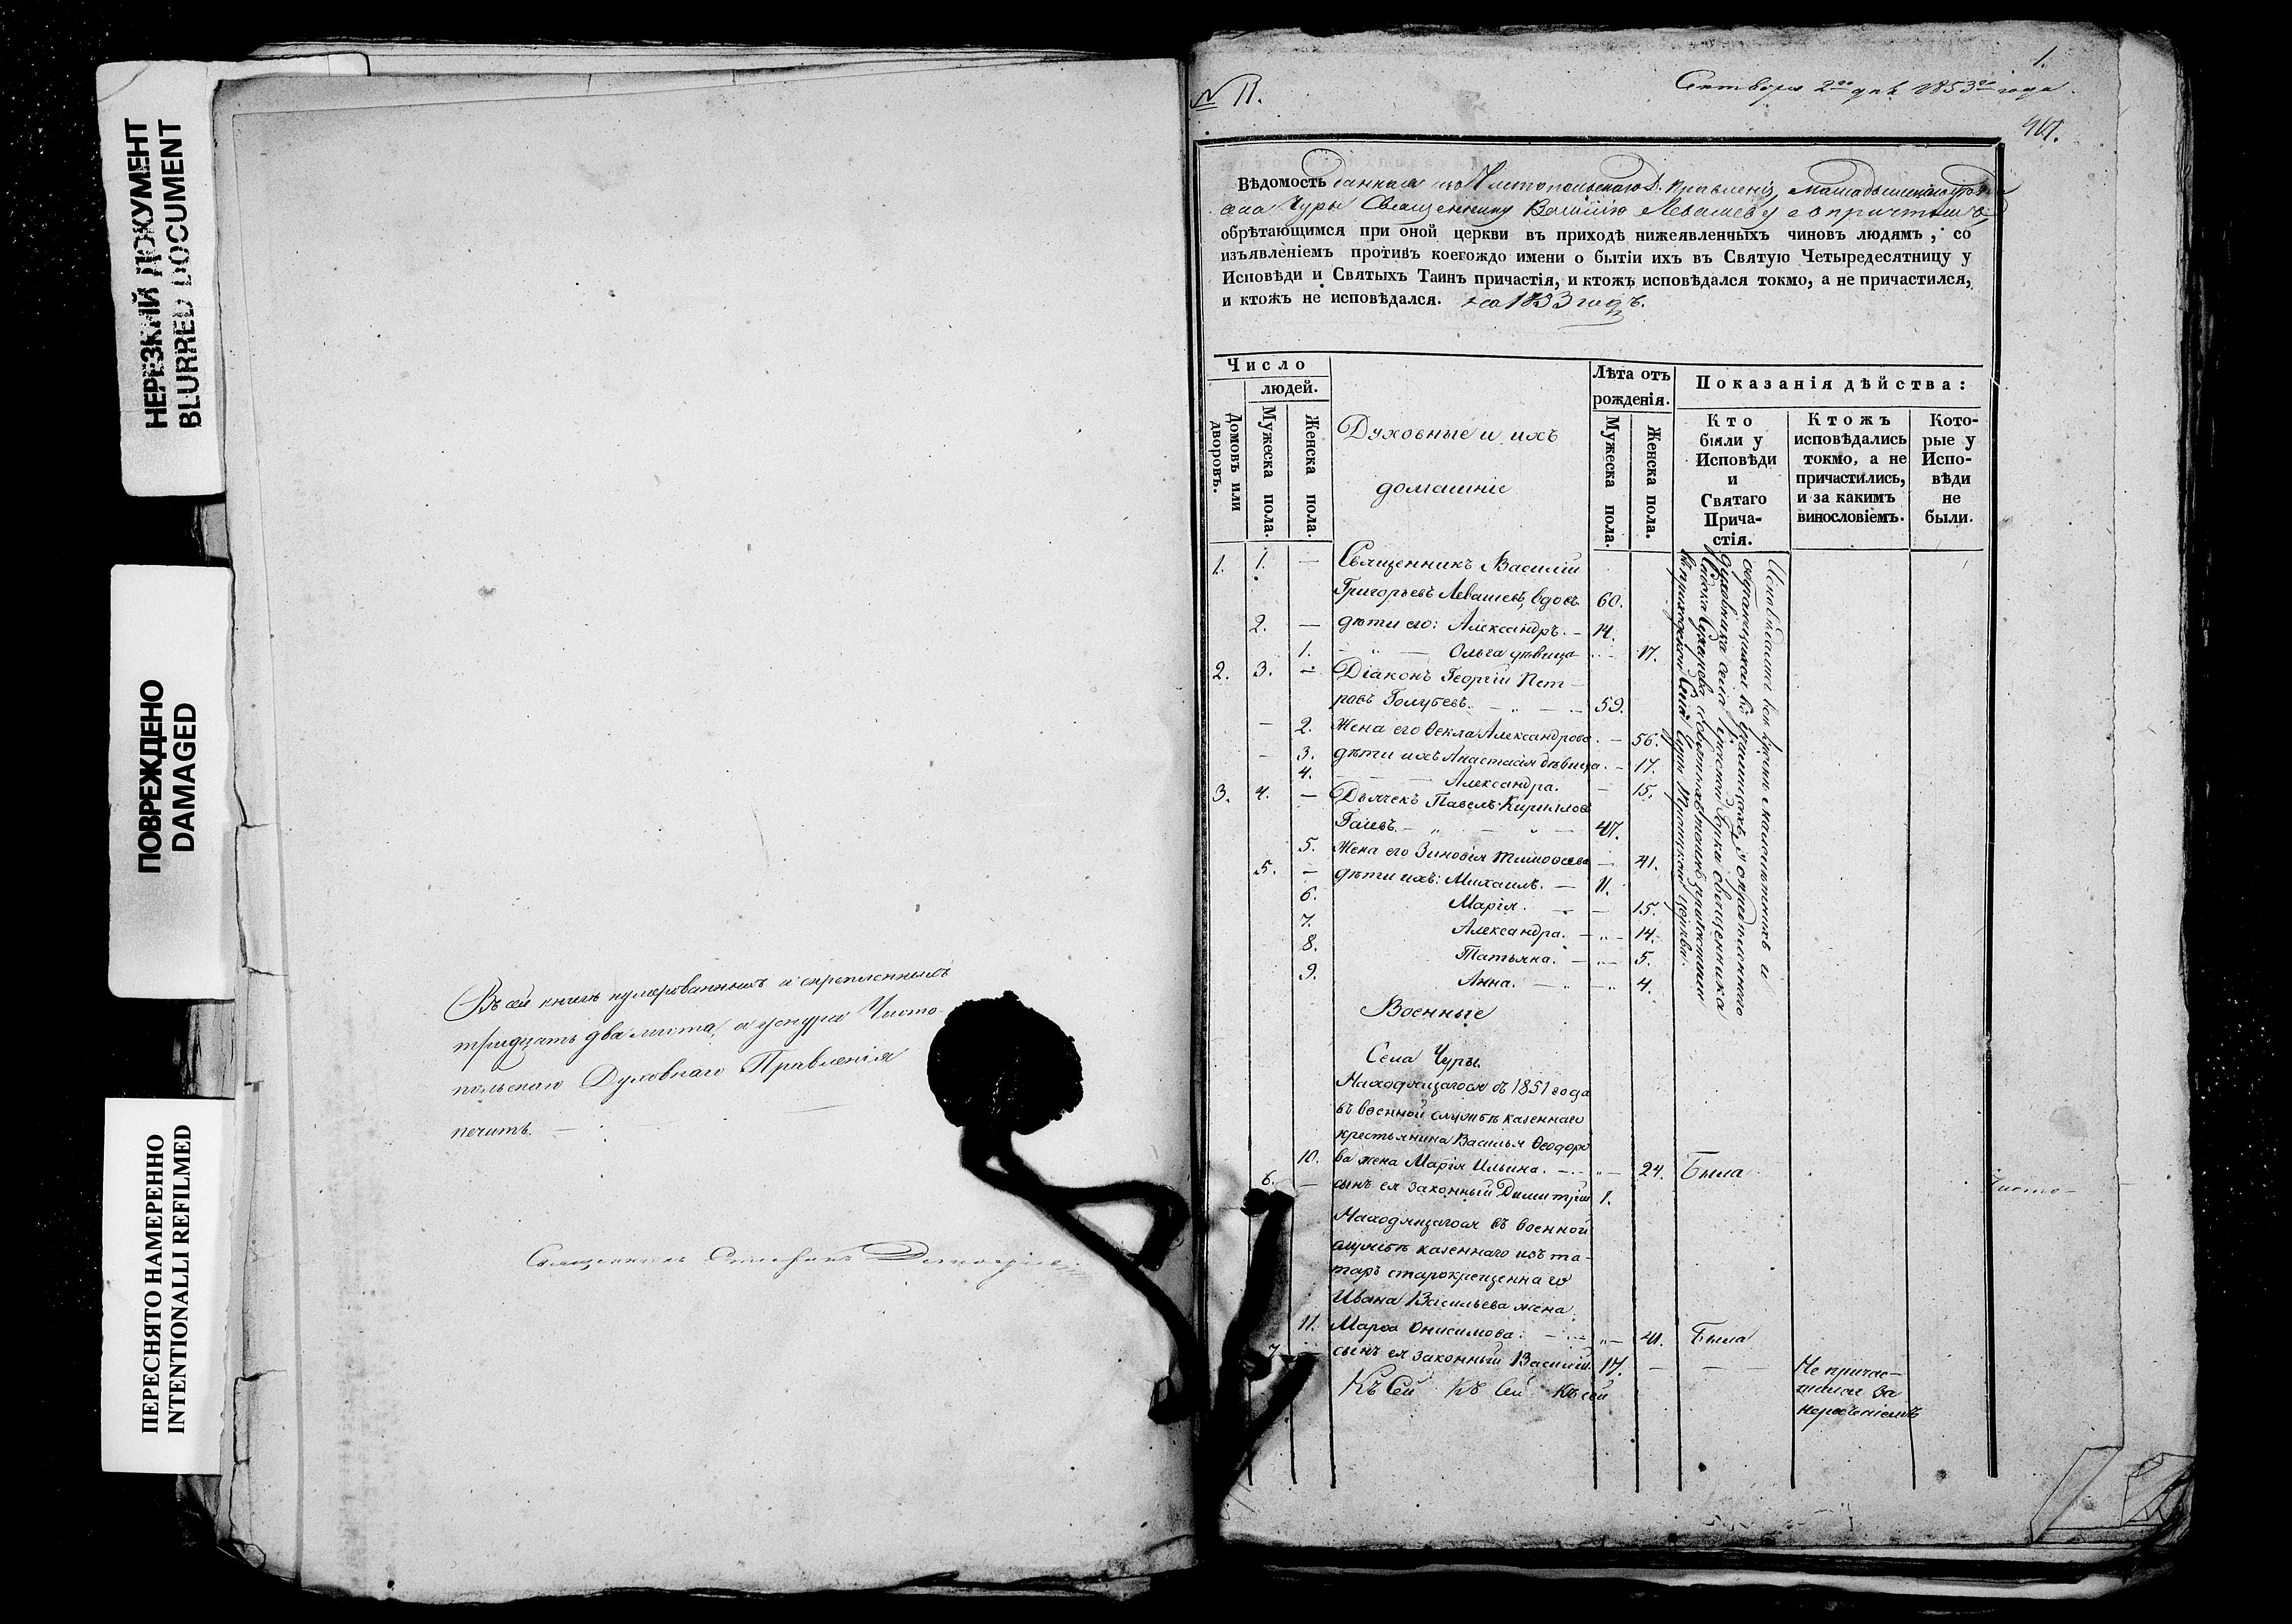 НЕРЕЗКИЙ ДОКУМЕНТ
BLURRED DOCUMENT
ПОВРЕЖДЕНО
DAMAGED
ПЕРЕСНЯТО НАМЕРЕННО
INTENTIONALLI REFILMED
Въ сей книгѣ нумерованныхъ и скрепленныхъ
тридцать два листа, а у снура Чисто-
польскаго Духовнаго Правленія
печать.
Священникъ
1.
№ 11.
2го 1853го года
Вѣдомость данная изъ Чистопольскаго Д. Правленія, Мамадышскаго уѣзда
села Чуры Священнику Василію Левашеву с причтомъ о
обрѣтающимся при оной церкви въ приходѣ нижеявленныхъ чиновъ людямъ, со
изъявленіемъ противъ коегождо имени о бытіи ихъ въ Святую Четыредесятницу у
Исповѣди и Святыхъ Таинъ причастія, и ктожъ исповѣдался токмо, а не причастился,
и ктожъ не исповѣдался. на 1853 годъ.
Число
людей.
Домовъ или дворовъ.
Мужеска пола.
Женска пола.
Духовные и ихъ
домашніе
Лѣта отъ
рожденія.
Мужеска пола.
Женска пола.
Показанія дѣйства:
Кто
были у
Исповѣди
и
Святаго
Прича-
стія.
Ктожъ
исповѣдались
токмо, а не
причастились,
и за какимъ
винословіемъ.
Кото-
рые у
Испо-
вѣди
не
были.
1. 1. — Священникъ Василій
Григорьевъ Левашевъ, вдовъ 60.
2. — дѣти его: Александръ. — 14.
1. — Ольга дѣвица — 17.
2. 3. — Діаконъ Георгій Пет-
ровъ Голубевъ. — 59.
— 2. Жена его Ѳекла Александрова. — 56.
— 3. дѣти ихъ Анастасія дѣвица. — 17.
4. Александра. — 15.
3. 4. — Дьячекъ Павелъ Кирилловъ
Гаievъ. — 47.
5. Жена его Зиновія Тимоѳеева — 41.
5. — дѣти ихъ: Михаилъ. — 11.
6. Марія. — 15.
7. Александра. — 14.
8. Татьяна. — 5.
9. Анна. — 4.
Военные
Села Чуры.
Находящагося съ 1851 года
въ военной службѣ казеннаго
крестьянина Василья Ѳеодоро
10. ва жена Марія Ильина. — 24. Была
6. — сынъ ея законный Димитрій 1.
Находящагося въ военной
службѣ казеннаго изъ та-
таръ старокрещеннаго
Ивана Васильева жена
11. Марѳа Онисимова: — 41. Была
7. — сынъ ея законный Василій. 17. — — Не причас-
тился за
нерадѣніемъ
Къ Сей Къ Сей Къ сей
Чисто-